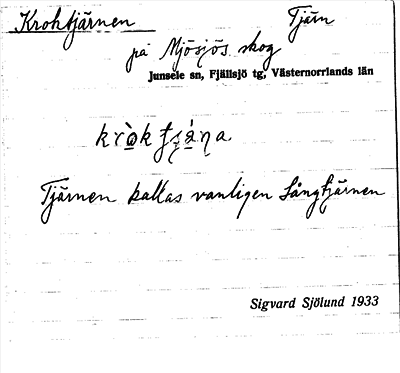 Krohtjärnen Tjärn
på Mjösjös skog
Junsele sn, Fjällsjö tg, Västernorrlands län
Tjärnen kallas vanligen Långtjärnen
Sigvard Sjölund 1933